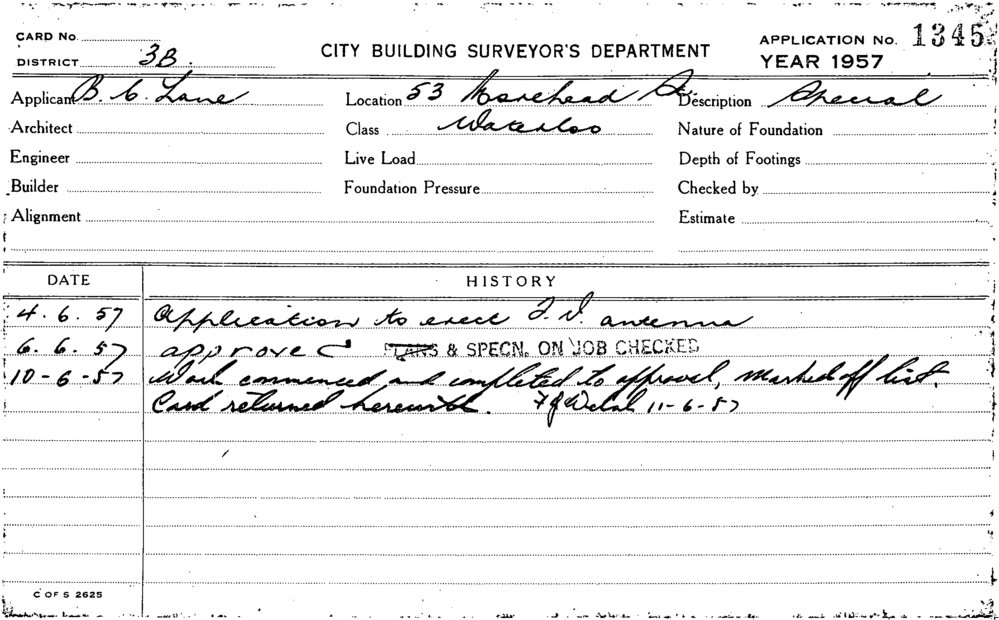 CARD No. CITY BUILDING SURVEYOR'S DEPARTMENT APPLICATION No. 1345
DISTRICT 3B. YEAR 1957
Applicant B. C. Lane Location 53 Morehead St. Description Special
Architect Class Waterloo Nature of Foundation
Engineer Live Load Depth of Footings
Builder Foundation Pressure Checked by
Alignment Estimate
DATE HISTORY
4. 6. 57 Application to erect T.V. antenna
6. 6. 57 approved PLANS & SPECN. ON JOB CHECKED
10-6-57 Work commenced and completed to approval, marked off list.
Card returned herewith. 11-6-57
C OF S 2625